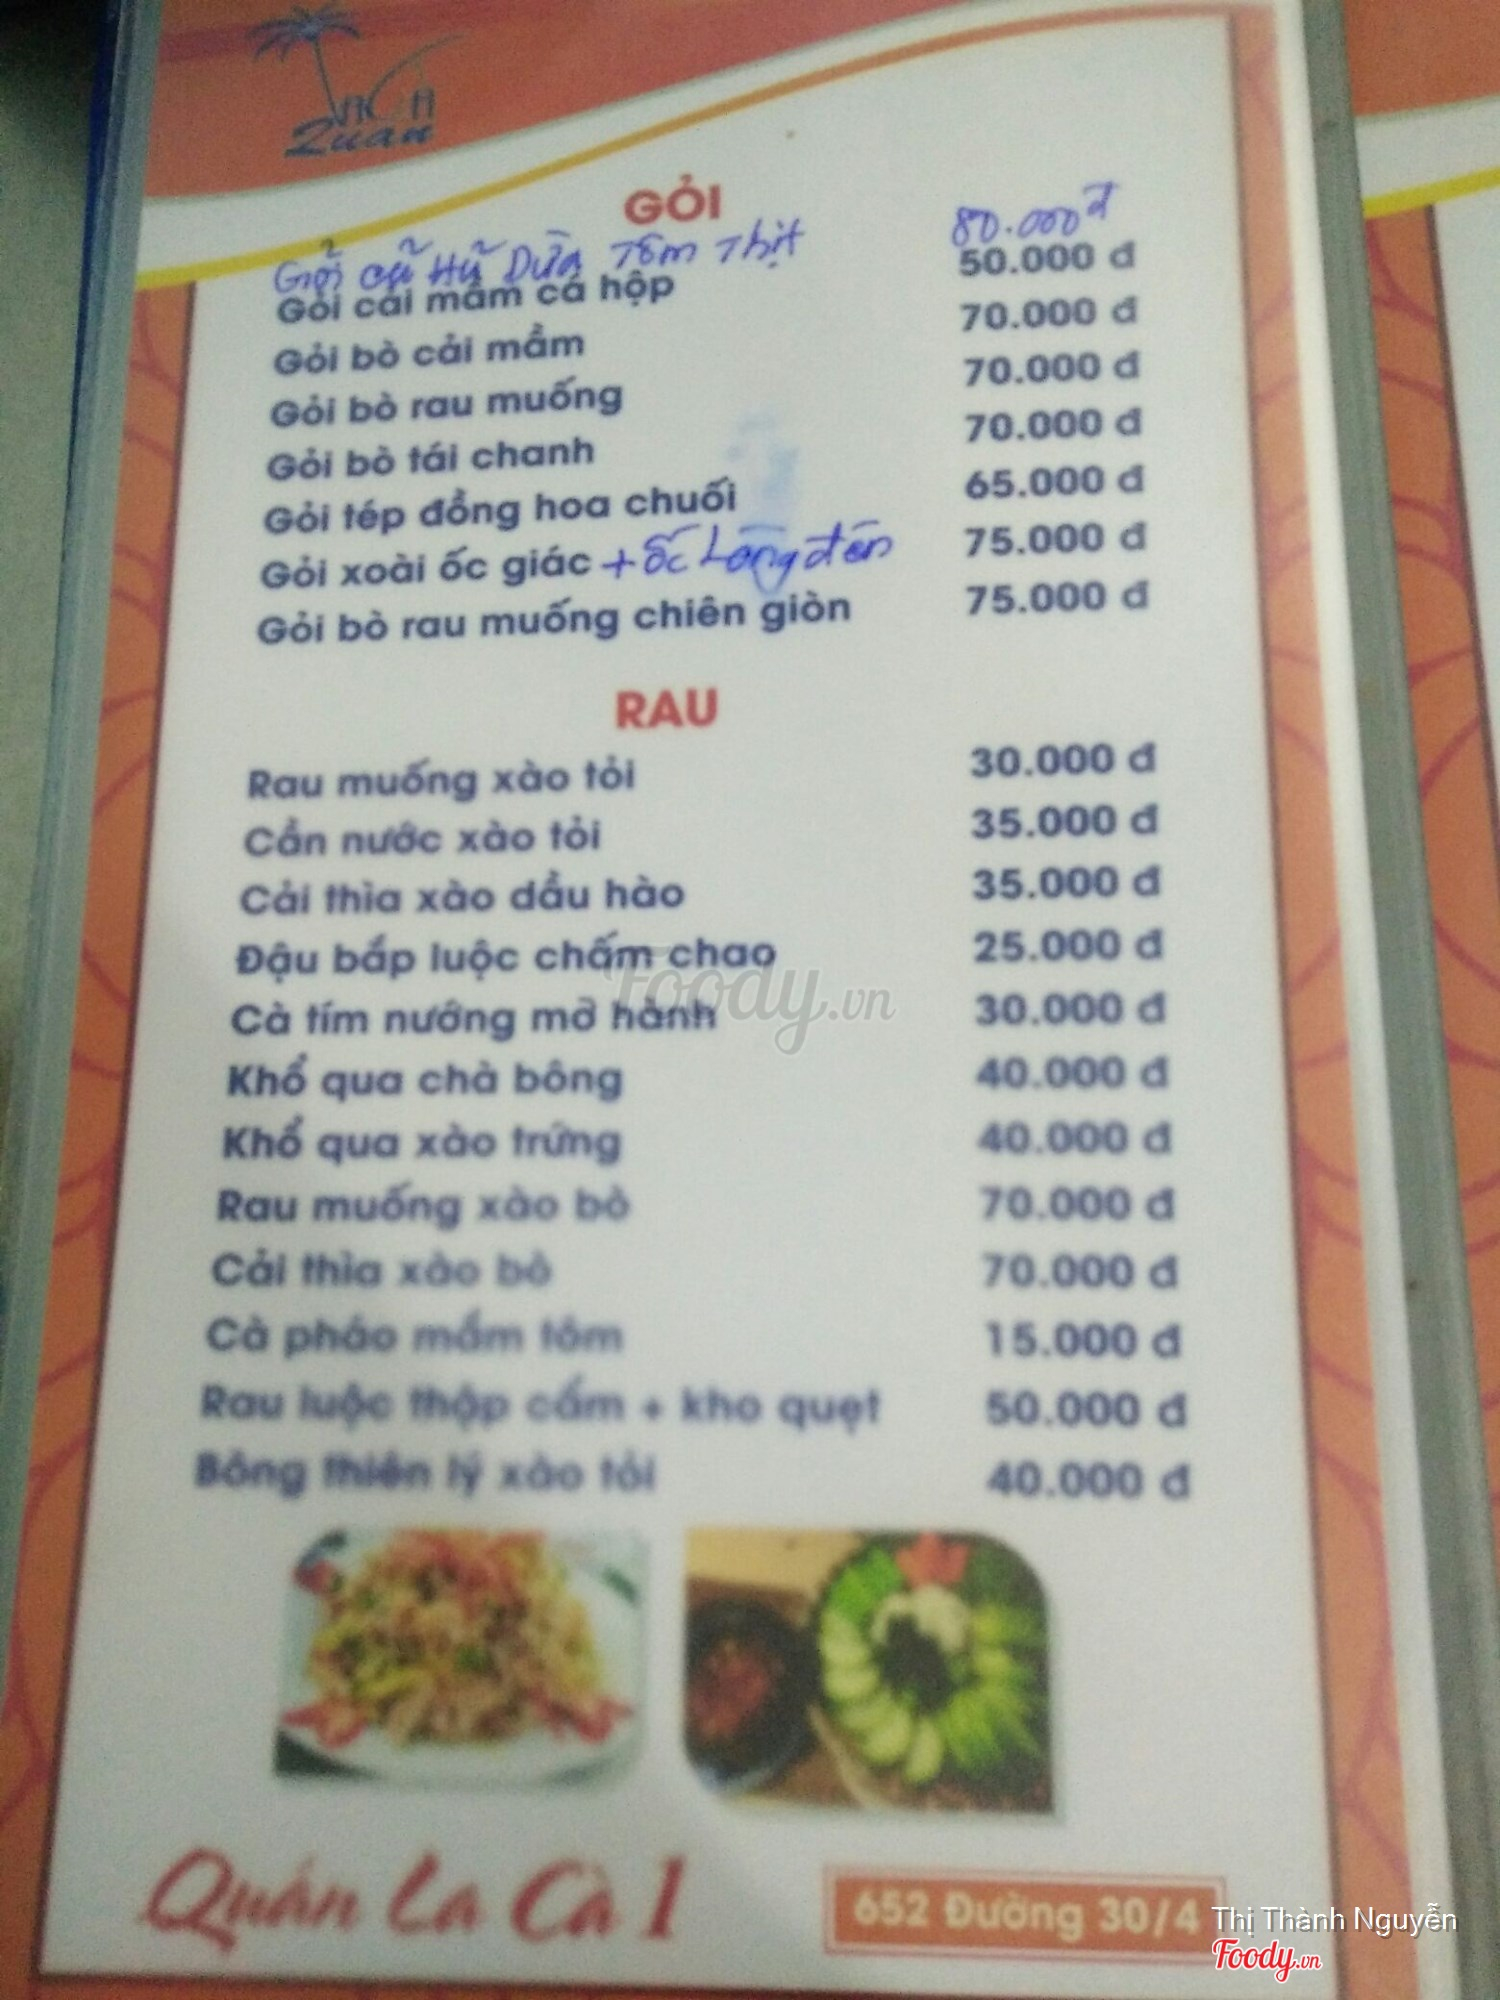 Quán
GỎI
Gỏi củ Hủ Dừa Tôm Thịt 80.000đ
Gỏi cải mầm cá hộp 50.000 đ
Gỏi bò cải mầm 70.000 đ
Gỏi bò rau muống 70.000 đ
Gỏi bò tái chanh 70.000 đ
Gỏi tép đồng hoa chuối 65.000 đ
Gỏi xoài ốc giác + ốc Lông đén 75.000 đ
Gỏi bò rau muống chiên giòn 75.000 đ
RAU
Rau muống xào tỏi 30.000 đ
Cần nước xào tỏi 35.000 đ
Cải thìa xào dầu hào 35.000 đ
Đậu bắp luộc chấm chao 25.000 đ
Cà tím nướng mỡ hành 30.000 đ
Khổ qua chà bông 40.000 đ
Khổ qua xào trứng 40.000 đ
Rau muống xào bò 70.000 đ
Cải thìa xào bò 70.000 đ
Cà pháo mắm tôm 15.000 đ
Rau luộc thập cẩm + kho quẹt 50.000 đ
Bông thiên lý xào tỏi 40.000 đ
Foody.vn
Quán La Cà 1
652 Đường 30/4
Thị Thành Nguyễn
Foody.vn